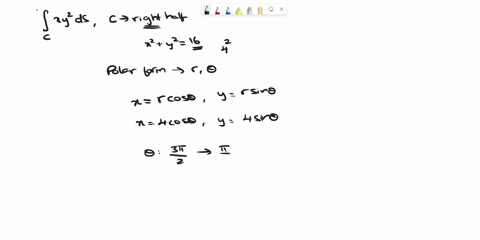 ∫_C xy² ds, C → right half
x² + y² = 16 2 4
Polar form → r, θ
x = r cosθ, y = r sinθ
x = 4 cosθ, y = 4 sinθ
θ: 3π/2 → π